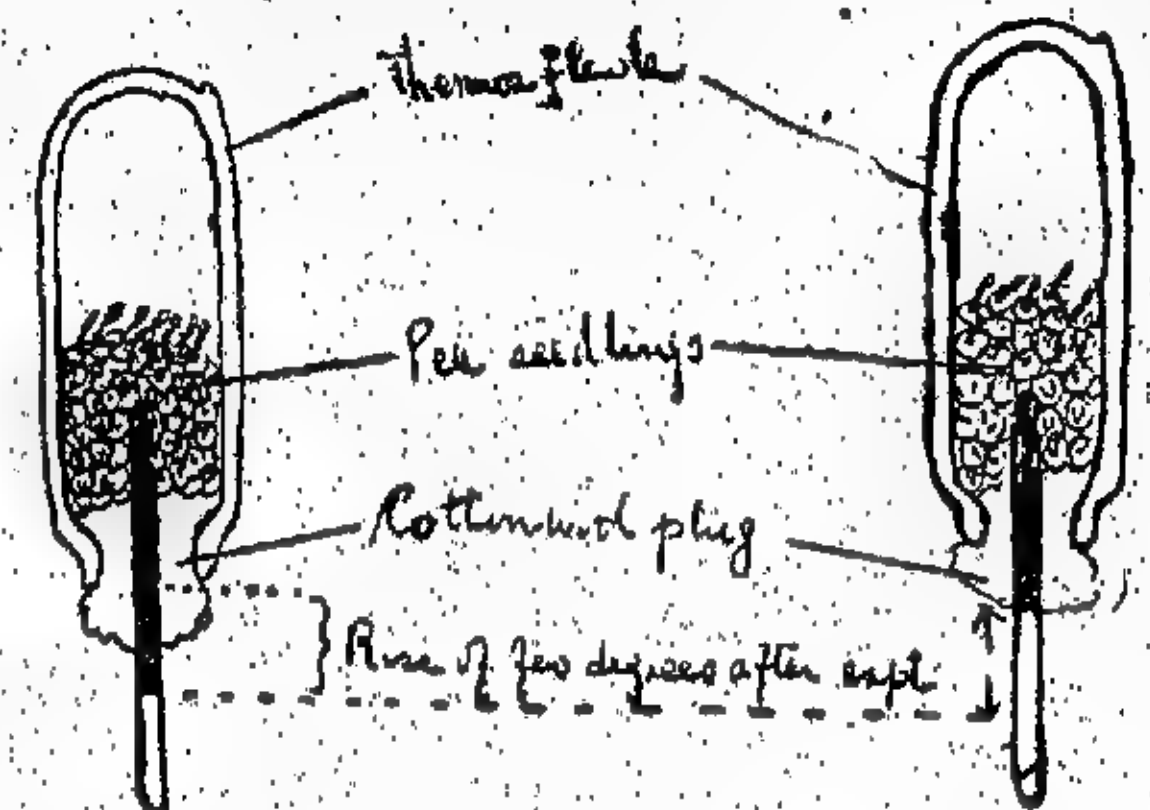 Thermos flask
Pea seedlings
Cottonwool plug
Rise of few degrees after expt.